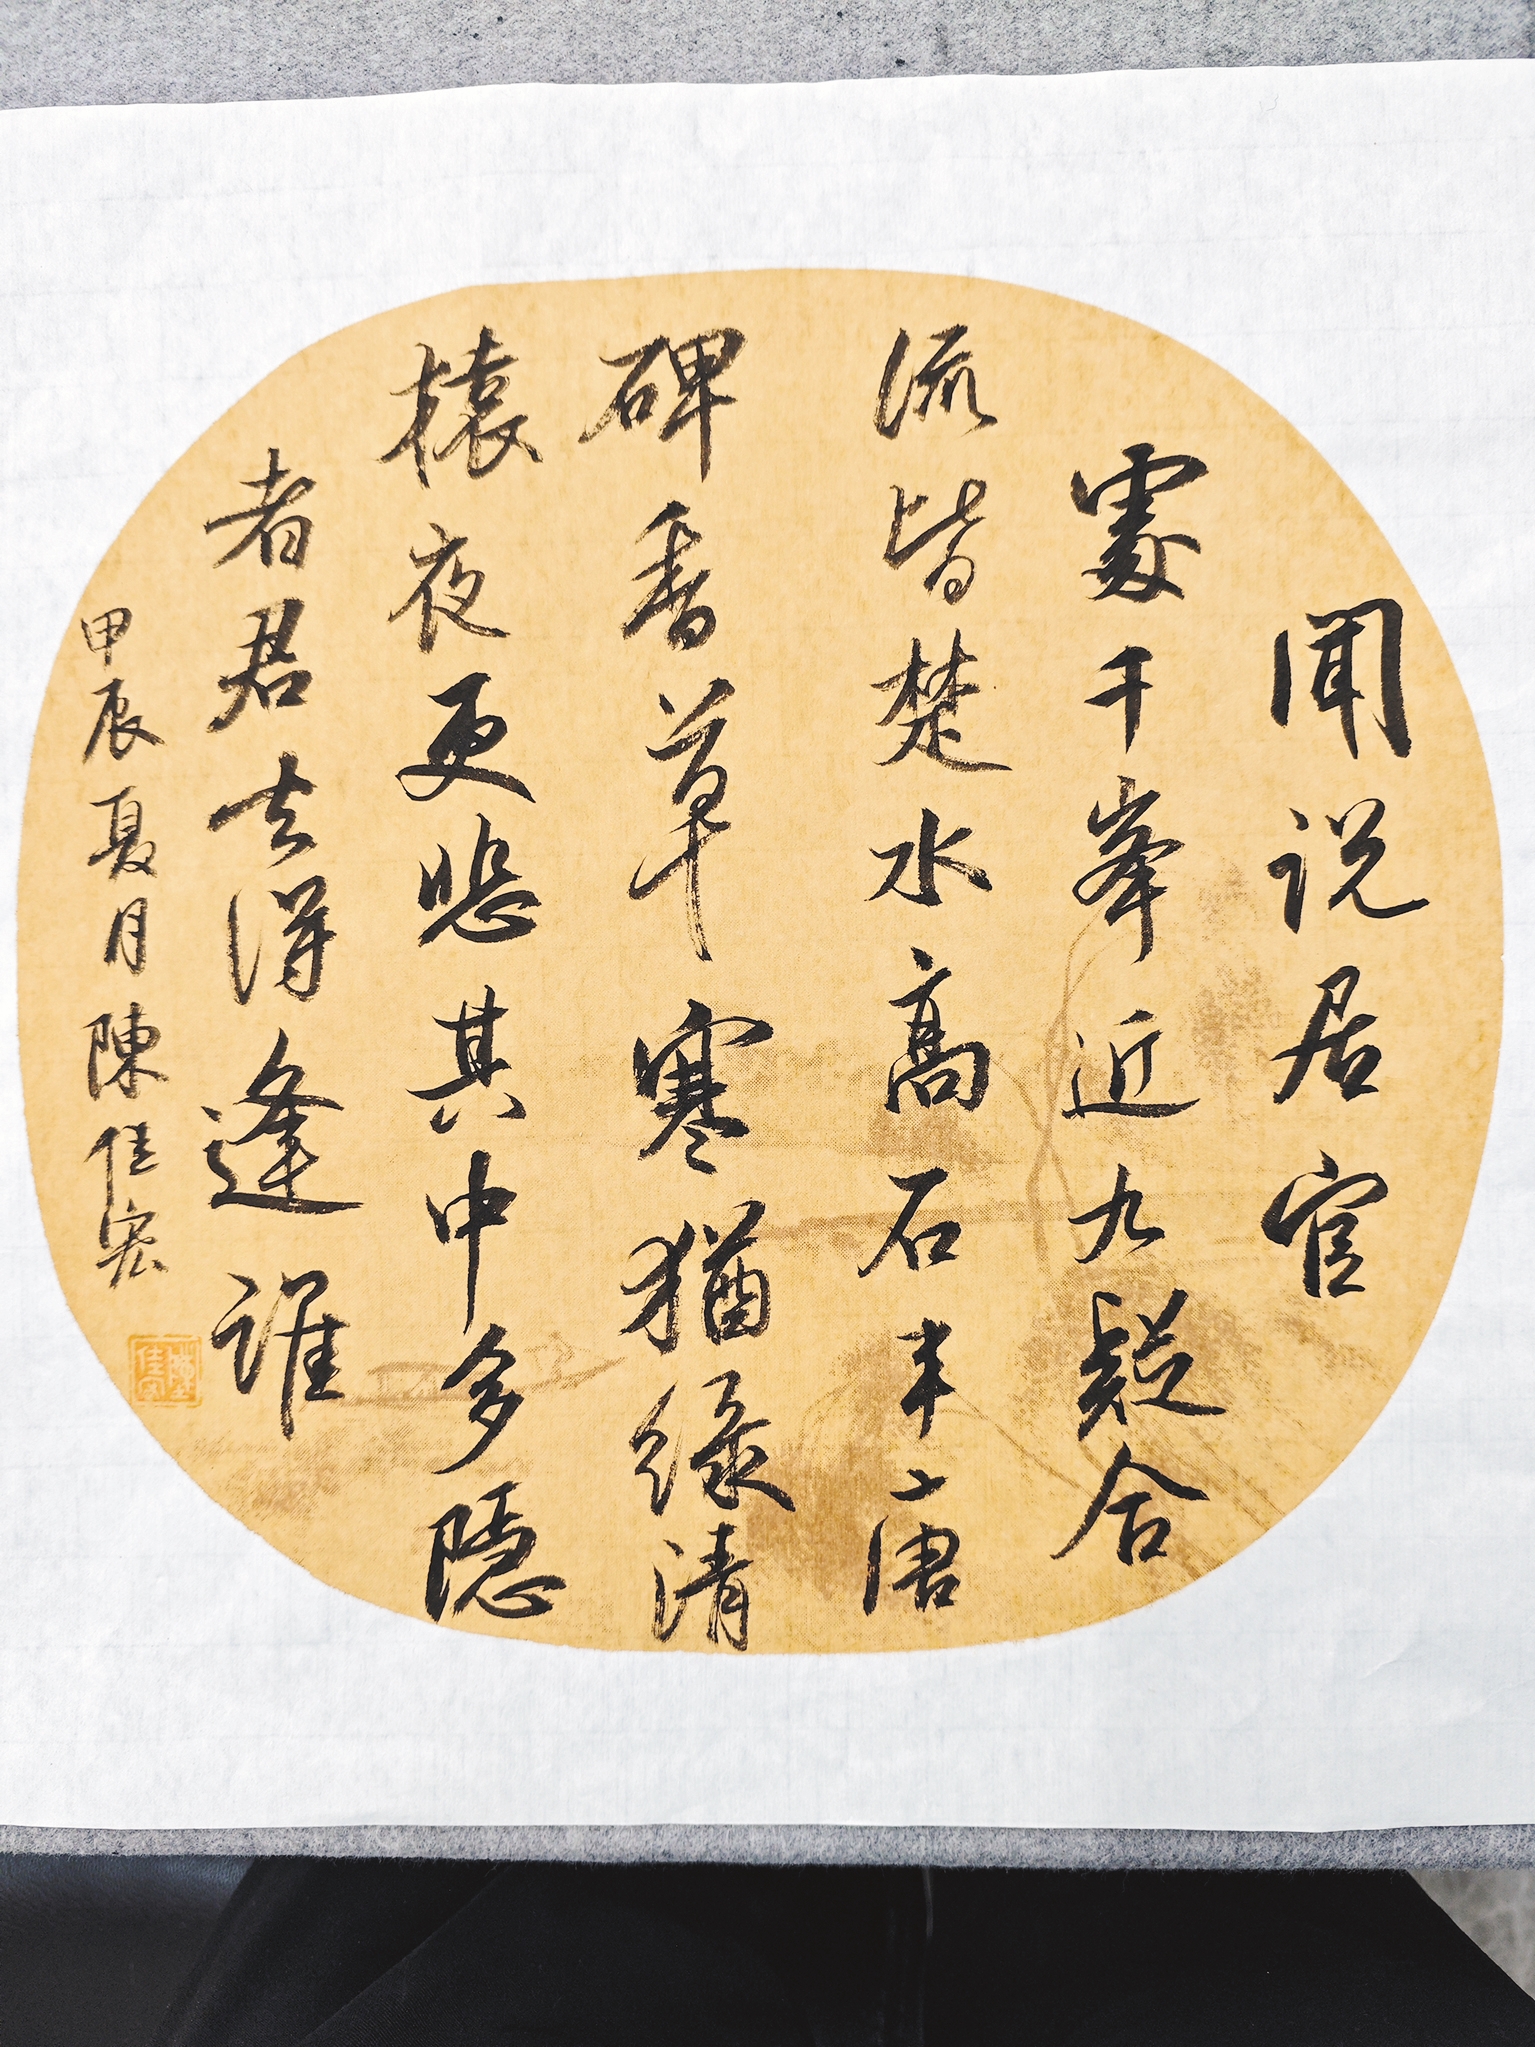 聞说居官
處千峯近九疑合
流皆楚水高石半唐
碑香草寒猶緑清
猿夜更悲其中多隱
者君去得逢誰
甲辰夏月陳佳宏